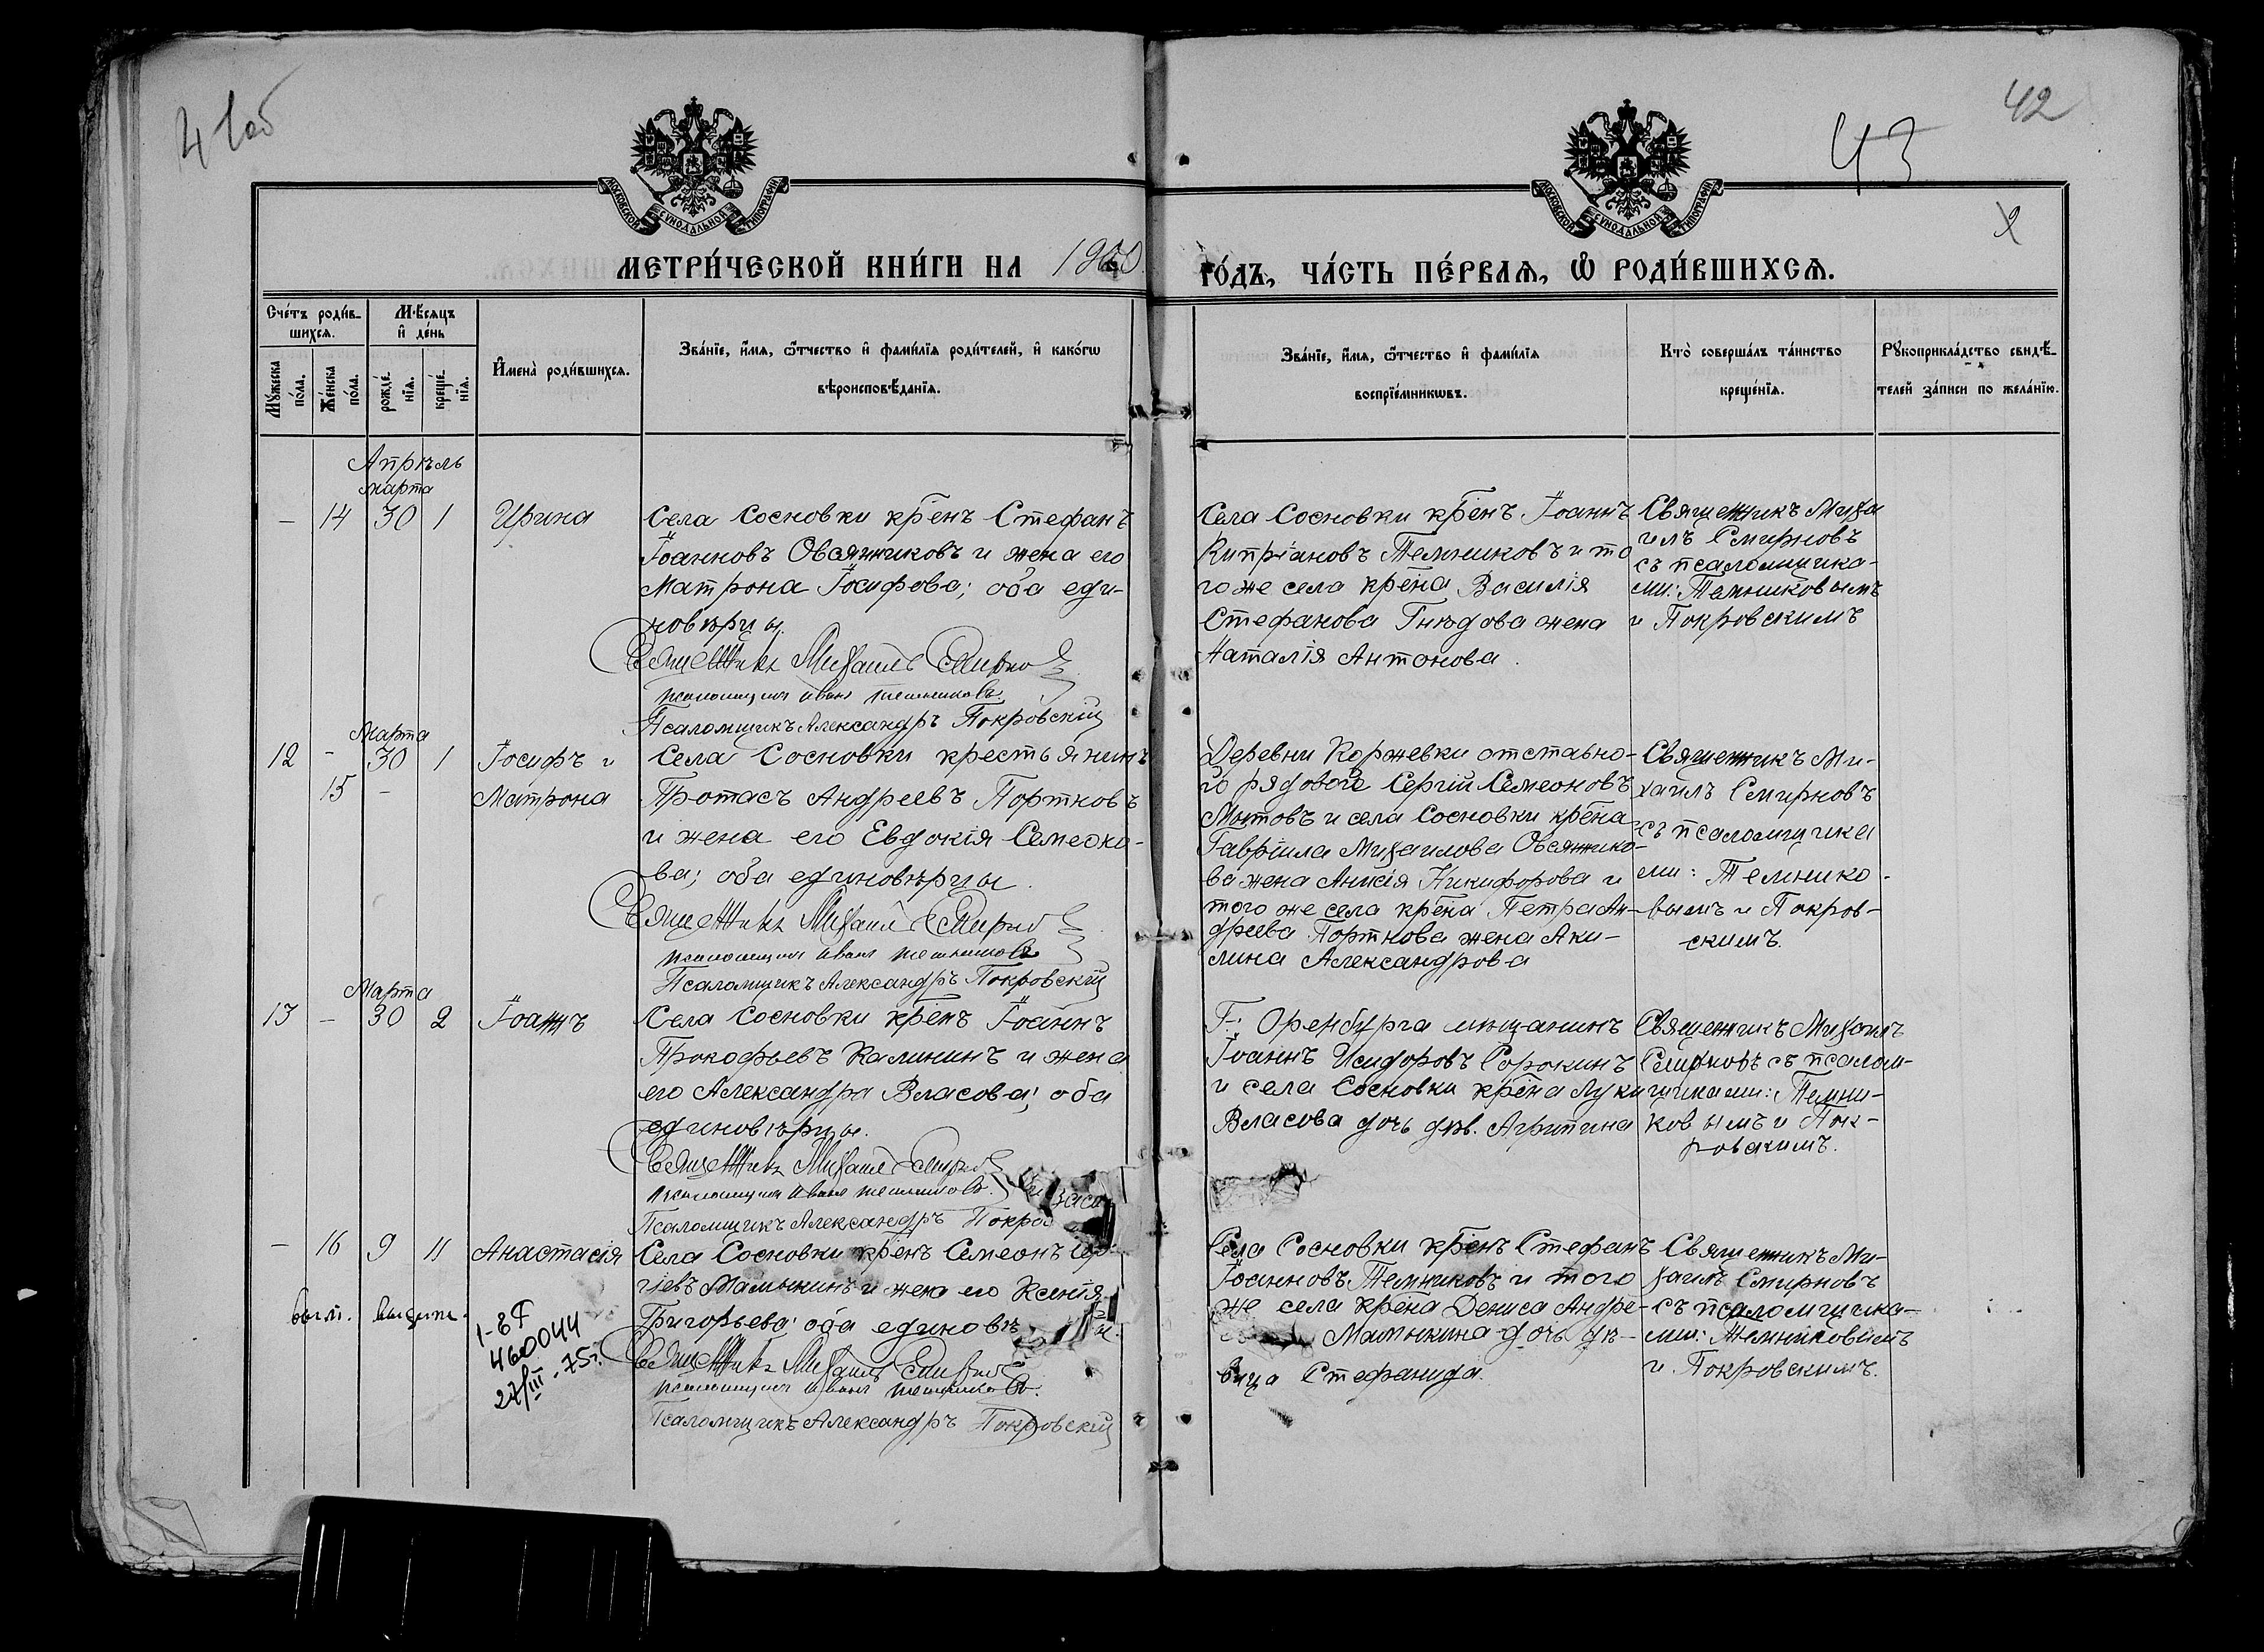 41об
42
43
2
МОСКОВСКОЙ СѴНОДАЛЬНОЙ ТИПОГРАФІИ
МОСКОВСКОЙ СѴНОДАЛЬНОЙ ТИПОГРАФІИ
МЕТРИ́ЧЕСКОЙ КНИ́ГИ НА 1900
ГО́ДЪ, ЧА́СТЬ ПЕ́РВАѦ, Ѽ РОДИ́ВШИХСѦ.
Сче́тъ роди́в-
шихсѧ.
Мꙋ́жеска
по́ла.
Же́нска
по́ла.
Мѣ́сѧцъ
и҆ де́нь
рожде́-
нїѧ.
креще́-
нїѧ.
И҆мена̀ роди́вшихсѧ.
Зва́нїе, и҆́мѧ, ѻ҆́тчество и҆ фами́лїѧ роди́телей, и҆ како́гѡ
вѣроисповѣ́данїѧ.
Зва́нїе, и҆́мѧ, ѻ҆́тчество и҆ фами́лїѧ
воспрїе́мникѡвъ.
Кто̀ соверша́лъ та́инство
креще́нїѧ.
Рꙋкоприкла́дство свидѣ́-
телей за́писи по жела́нїю.
Апрѣль
марта
— 14 30 1 Ирина
Села Сосновки крѣнъ Стефанъ
Іоанновъ Овсянниковъ и жена его
Матрона Іосифова; оба еди-
новѣрцы.
Священникъ Михаилъ Смирновъ
псаломщикъ Иванъ Темниковъ.
Псаломщикъ Александръ Покровскій
Села Сосновки крѣнъ Іоаннъ
Кипріановъ Темниковъ и то
го же села крѣна Василія
Стефанова Гнѣдова жена
Наталія Антонова.
Священникъ Миха
илъ Смирновъ
съ псаломщика-
ми: Темниковымъ
и Покровскимъ
Марта
12 - 30 1 Іосифъ и
15 - Матрона
Села Сосновки крестьянинъ
Протасъ Андреевъ Портновъ
и жена его Евдокія Семеоно-
ва; оба единовѣрцы.
Священникъ Михаилъ Смирновъ
псаломщикъ Иванъ Темниковъ
Псаломщикъ Александръ Покровскій
Деревни Коржевки отставно-
й рядовой Сергій Семеоновъ
и села Сосновки крѣна
Гавріила Михаилова Овсяннико-
ва жена Анисія Никифорова и
того же села крѣна Петра Ан-
дреева Портнова жена Аки-
лина Александрова
Священникъ Ми-
хаилъ Смирновъ
съ псаломщика
ми: Темнико-
вымъ и Покров-
скимъ.
Марта
13 — 30 2 Іоаннъ
Села Сосновки крѣнъ Іоаннъ
Прокофьевъ Калининъ и жена
его Александра Власова; оба
единовѣрцы.
Священникъ Михаилъ Смирновъ
псаломщикъ Иванъ Темниковъ.
Псаломщикъ Александръ Покров
Г. Оренбурга мѣщанинъ
Іоаннъ Исидоровъ Сорокинъ
и села Сосновки крѣна Луки
Власова дочь дѣв. Агрипина
Священникъ Михаилъ
Смирновъ съ псалом-
щиками: Темни-
ковымъ и Пок-
ровскимъ.
— 16 9 11 Анастасія
Села Сосновки крѣнъ Семеонъ
гіевъ Мамыкинъ и жена его Ксенія
Григорьева; оба единовѣ
Священникъ Михаилъ Смирновъ
псаломщикъ Иванъ Темниковъ.
Псаломщикъ Александръ Покровскій
Села Сосновки крѣнъ Стефанъ
Іоанновъ Темниковъ и того
же села крѣна Дениса Андре-
Мамыкина дочь дѣ-
вица Стефанида.
Священникъ Ми-
хаилъ Смирновъ
съ псаломщика-
ми: Темниковымъ
и Покровскимъ.
460044
27/III-75г.